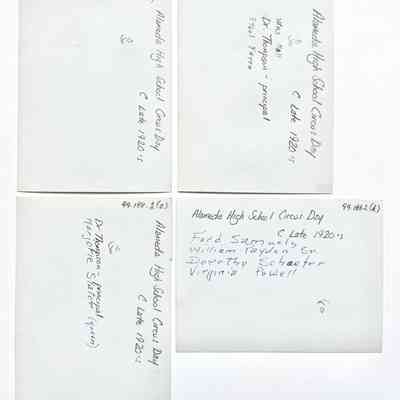 Alameda High School Circus Day
C Late 1920's
Alameda High School Circus Day
C Late 1920's
Miss Hall
Dr. Thompson - principal
99.188.2(c)
Alameda High School Circus Day
C Late 1920's
Dr Thompson - principal
Marjorie (queen)
99.188.2(d)
Alameda High School Circus Day
C Late 1920's
Ford Samuels
William Taydon Sr.
Dorothy Schaefer
Virginia Powell